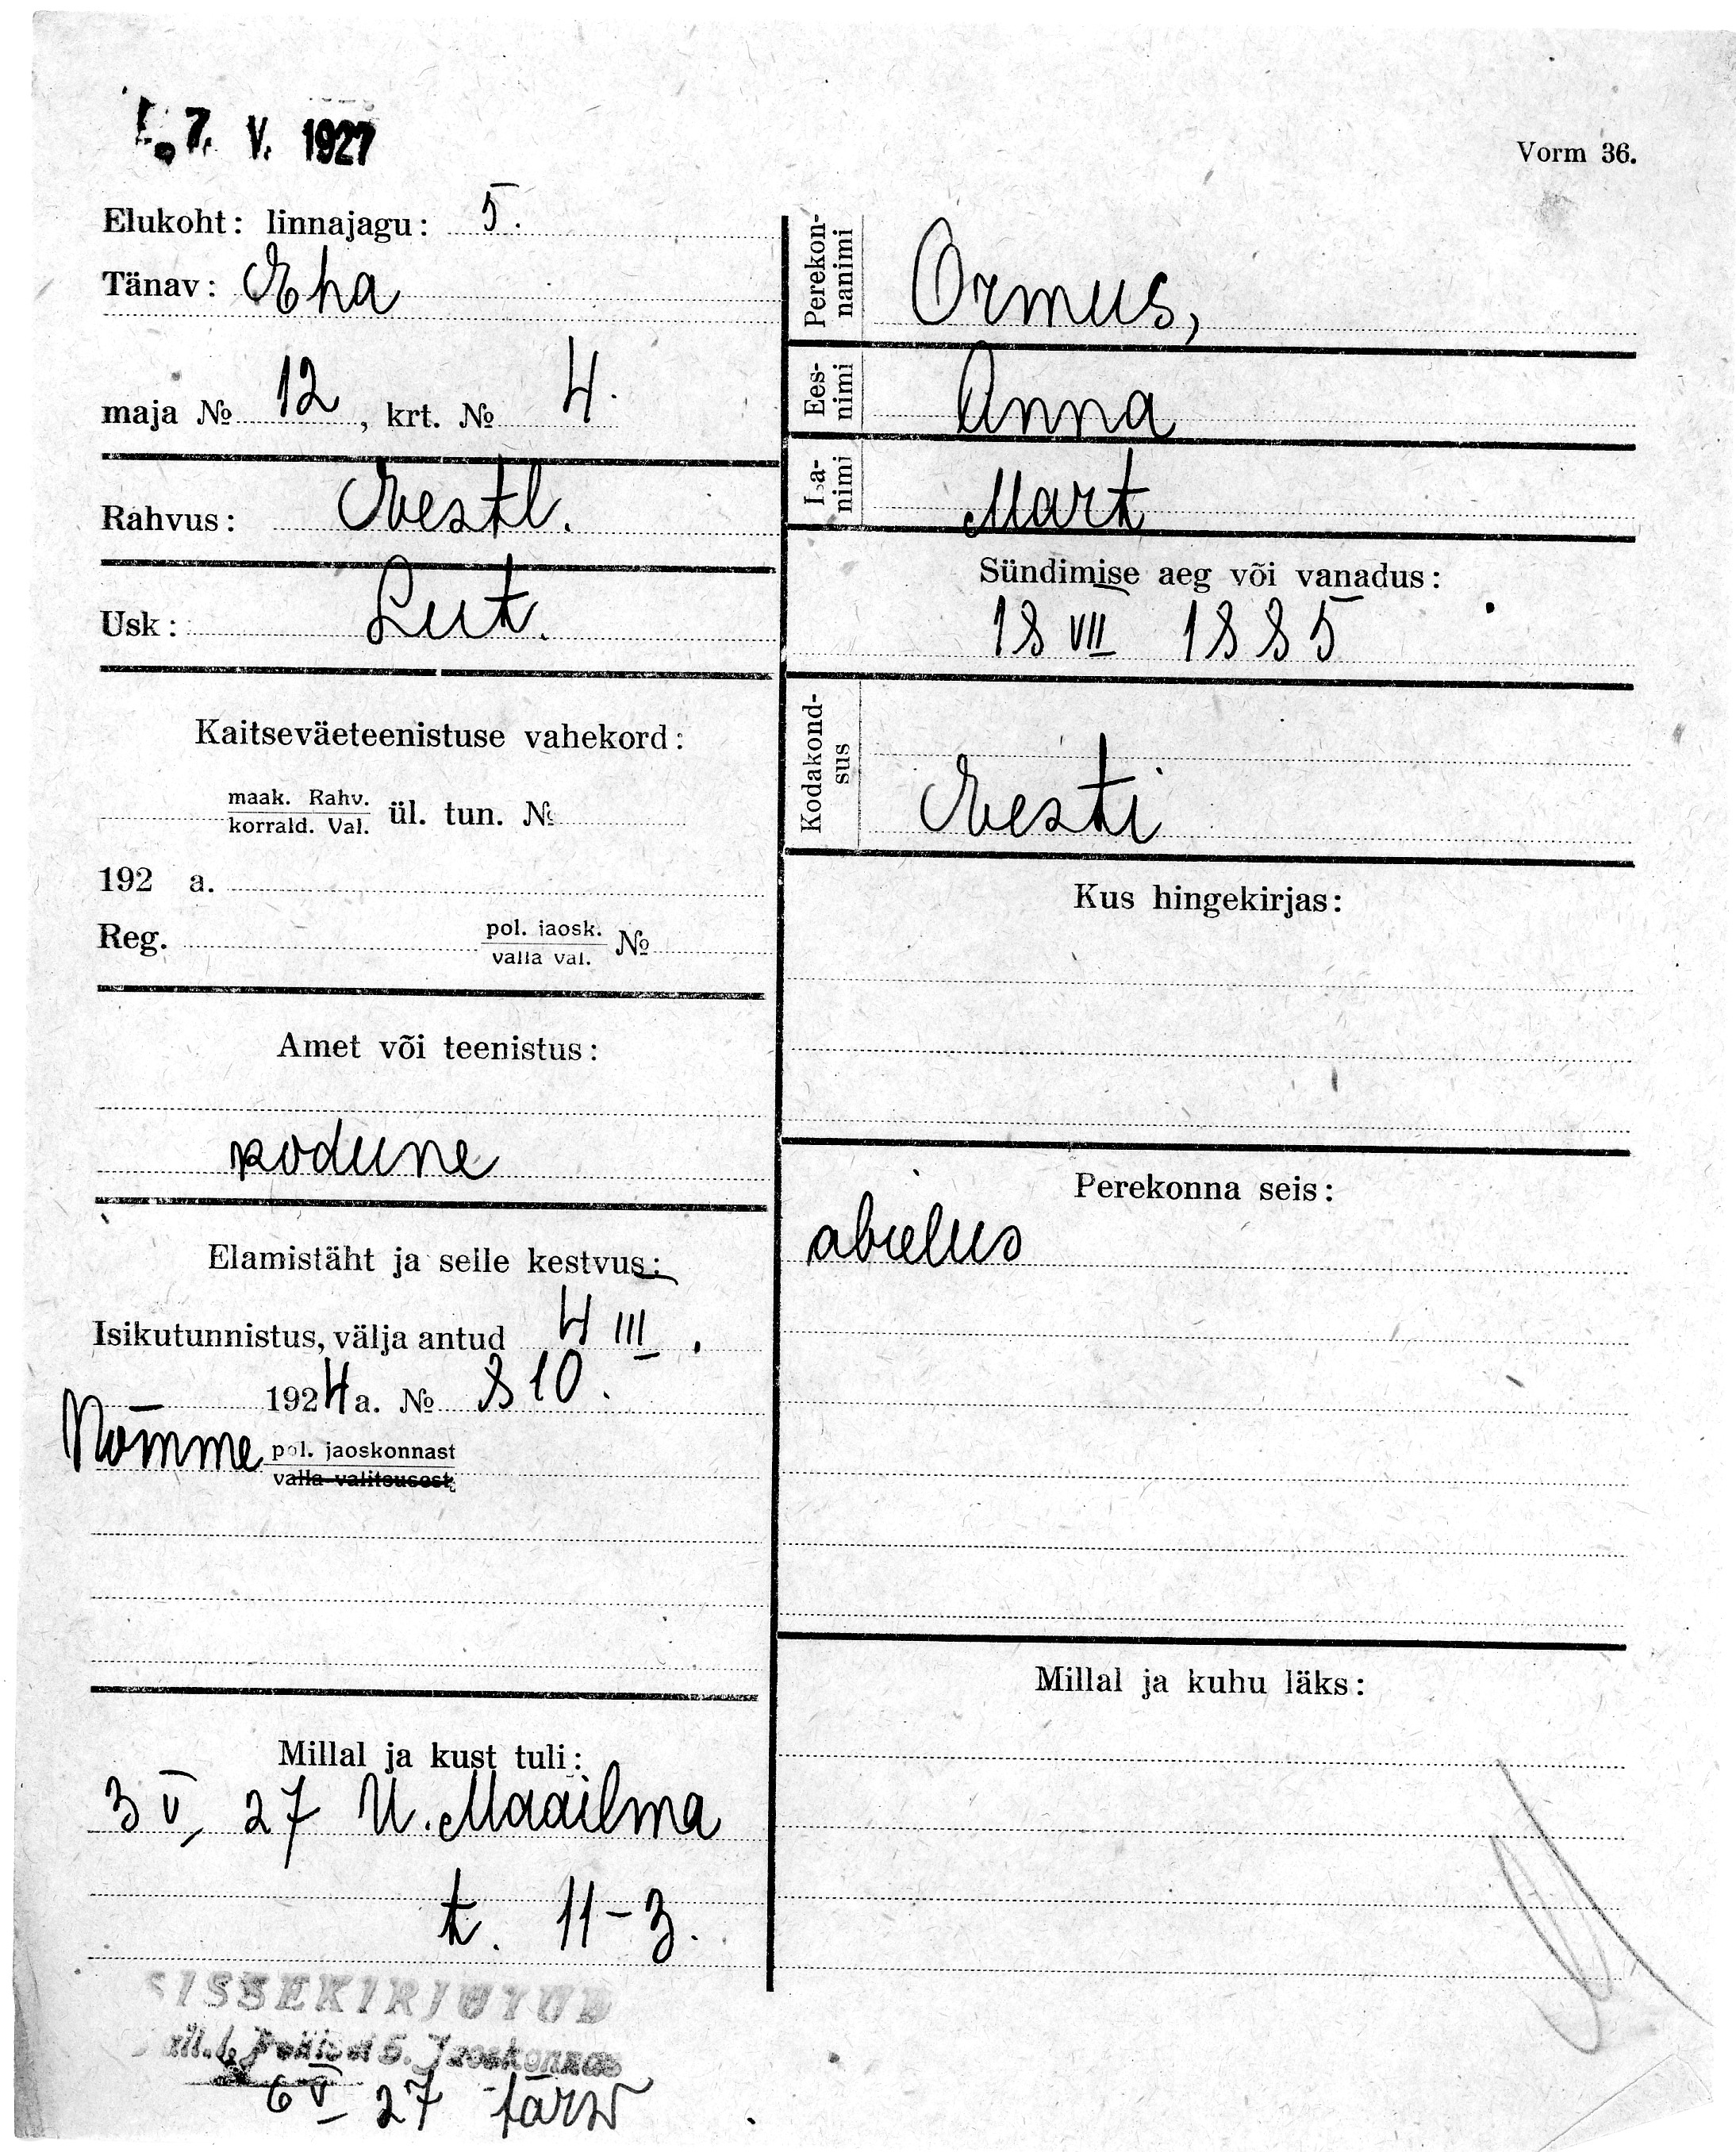 7. V. 1927
Vorm 36.
Elukoht: linnajagu: 5.
Tänav: Eha
maja № 12, krt. № 4.
Rahvus: Eestl.
Usk: Lut.
Kaitseväeteenistuse vahekord:
maak. Rahv.
korrald. Val. ül. tun. №
192 a.
Reg. pol. jaosk. №
valla val.
Amet või teenistus:
kodune
Elamistäht ja selle kestvus:
Isikutunnistus, välja antud 4 III.
1924 a. № 810.
Nõmme pol. jaoskonnast
valla valitsusest
Millal ja kust tuli:
3 V 27 U. Maailma
t. 11-3.
SISSEKIRJUTUD
Tall. l. Politsei 5. Jaoskonnas
6 V 27
Perekon-
nanimi
Ormus,
Ees-
nimi
Anna
Isa-
nimi
Mart
Sündimise aeg või vanadus:
18 VII 1885
Kodakond-
sus
Eesti
Kus hingekirjas:
Perekonna seis:
abielus
Millal ja kuhu läks: